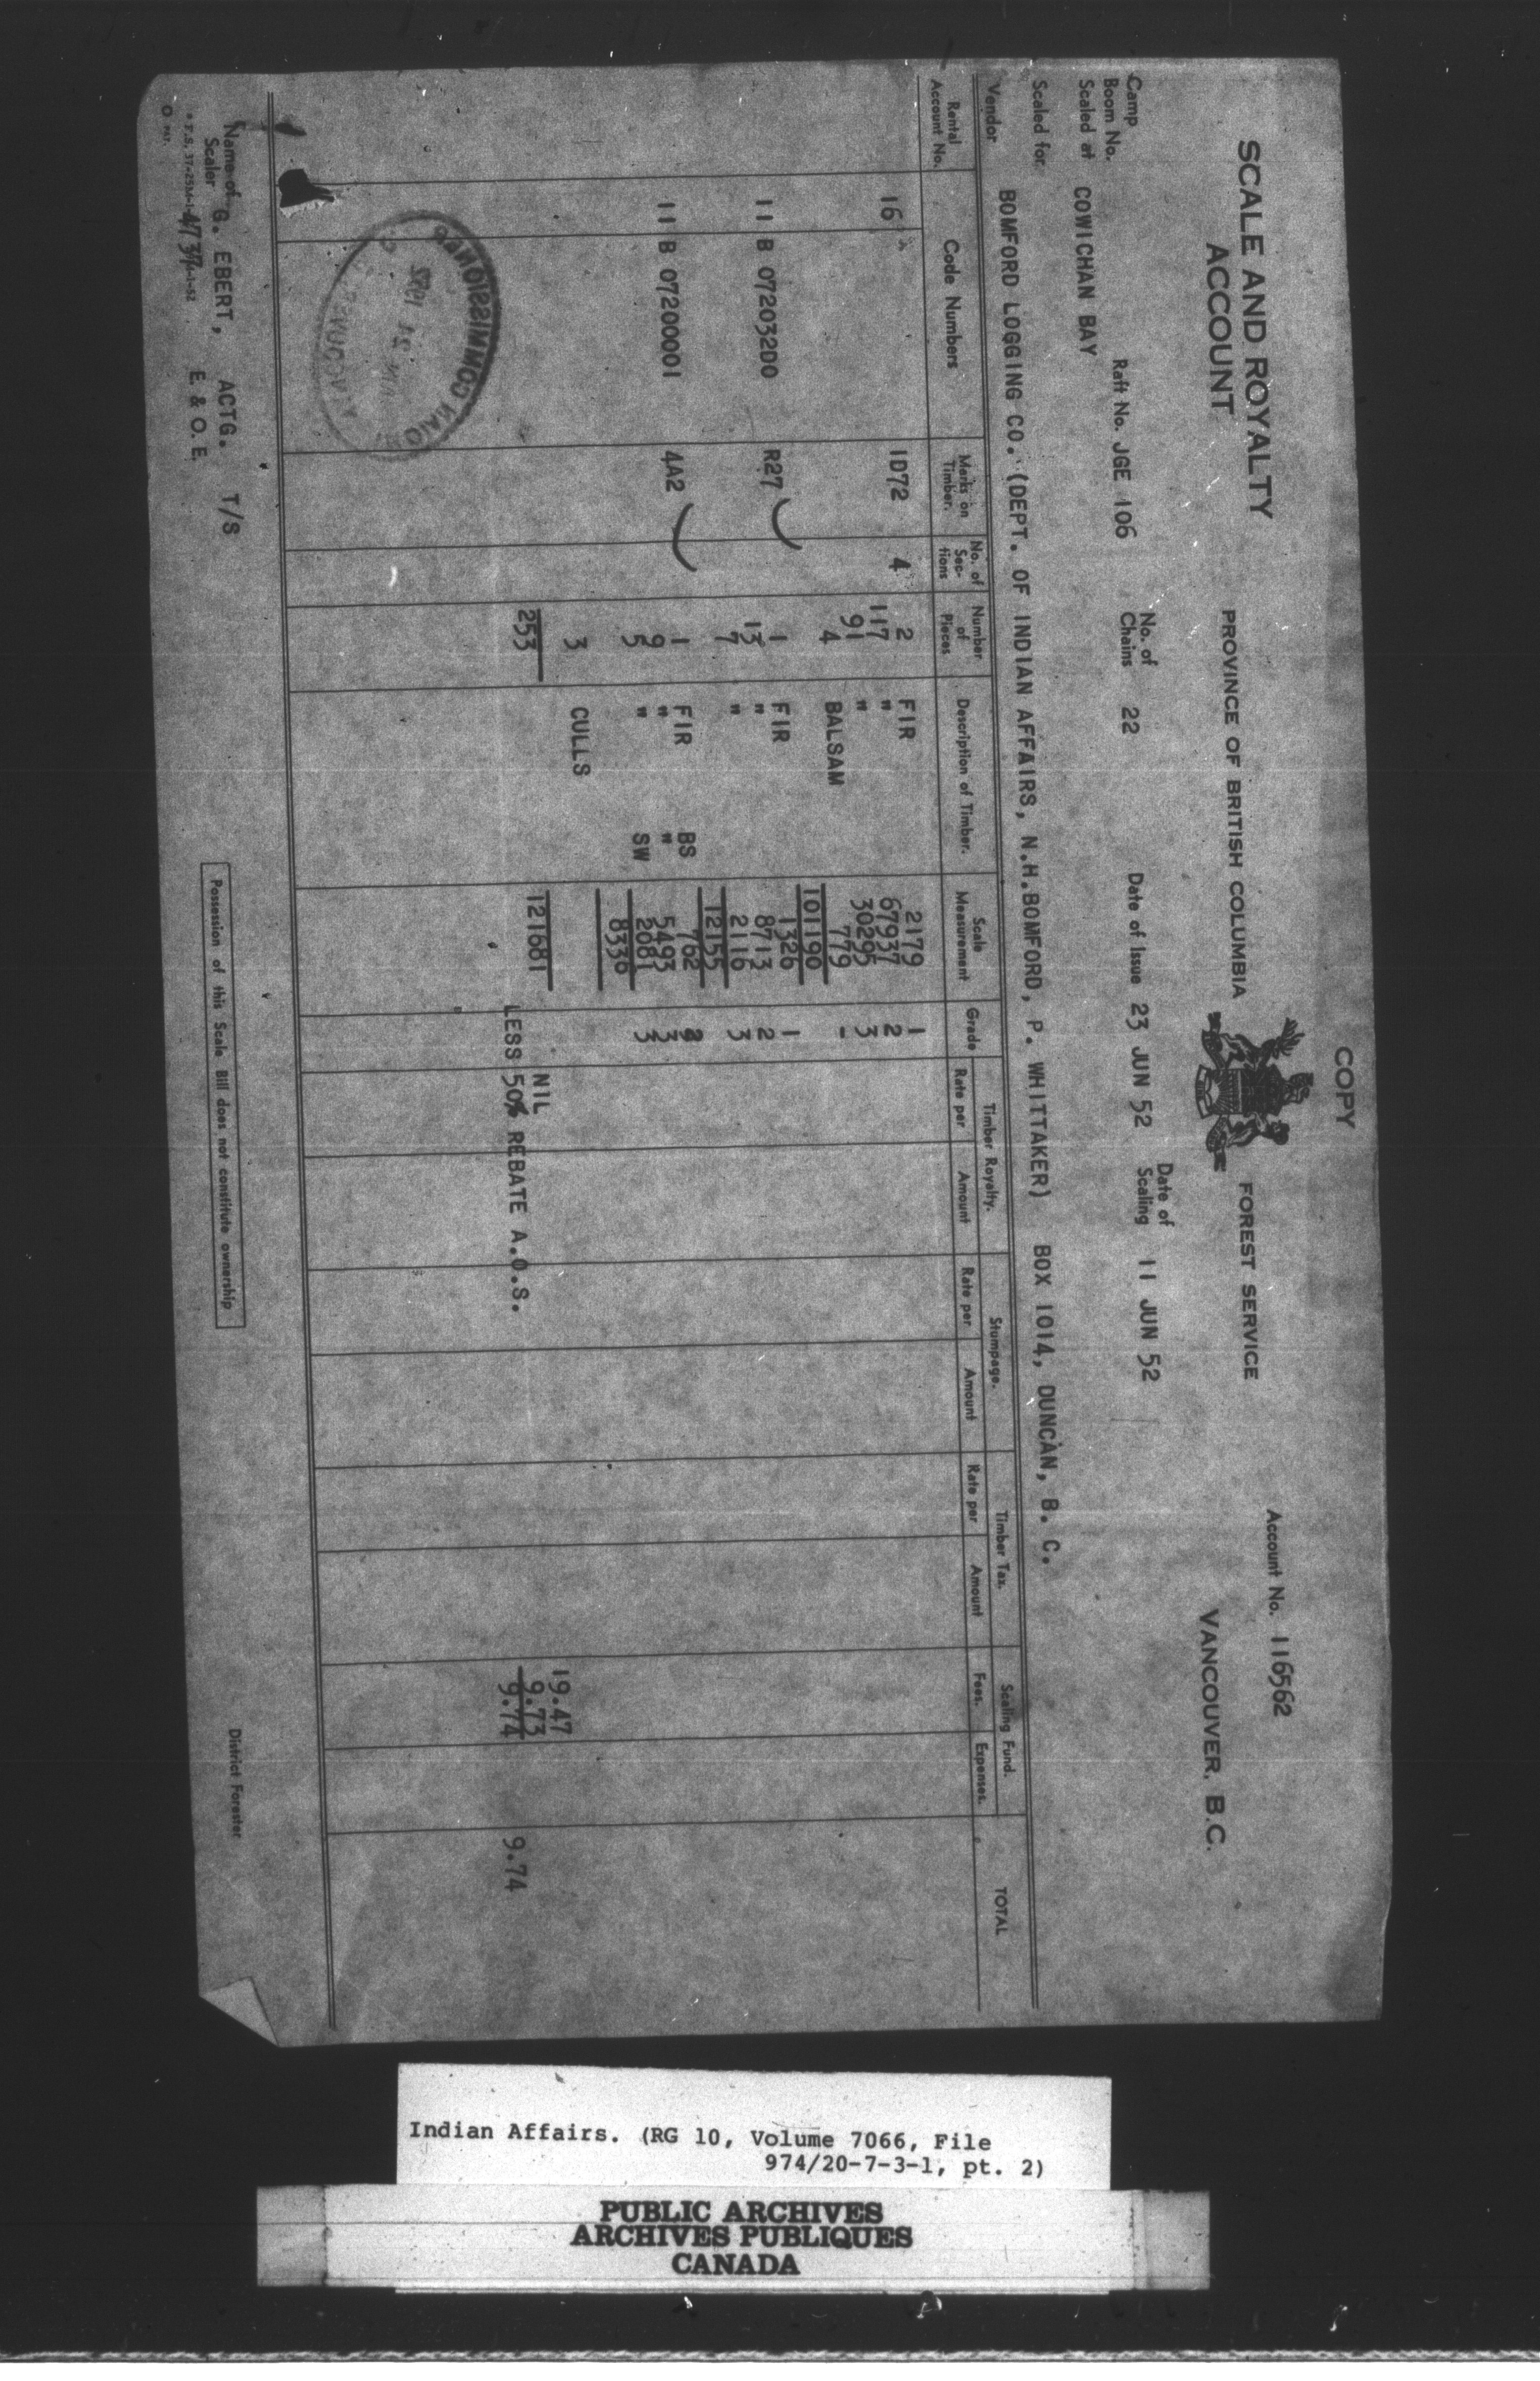 COPY
SCALE AND ROYALTY
ACCOUNT
PROVINCE OF BRITISH COLUMBIA FOREST SERVICE
Account No. 116562
VANCOUVER, B.C.
Camp
Boom No. Raft No. JGE 106 No. of Chains 22 Date of Issue 23 JUN 52 Date of Scaling 11 JUN 52
Scaled at COWICHAN BAY
Scaled for BOMFORD LOGGING CO. (DEPT. OF INDIAN AFFAIRS, N.H.BOMFORD, P. WHITTAKER) BOX 1014, DUNCAN, B. C.
Vendor
Rental Account No. Code Numbers Marks on Timber. No. of Sec-tions Number of Pieces Description of Timber. Scale Measurement Grade Timber Royalty. Rate per Amount Stumpage. Rate per Amount Timber Tax. Rate per Amount Scaling Fund. Fees. Expenses. TOTAL
16 1D72 4 2 FIR 2179 1
117 " 67937 2
91 " 30295 3
4 BALSAM 779 -
101190
11 B 072032D0 R27 1 FIR 1326 1
13 " 8713 2
7 " 2116 3
12155
11 B 07200001 4A2 1 FIR BS 762 2
9 " " 5493 3
5 " SW 2081 3
8336
3 CULLS
19.47
253 121681 NIL 9.73
LESS 50% REBATE A.O.S. 9.74 9.74
INDIAN COMMISSIONER
Name of Scaler G. EBERT, ACTG. T/S
E. & O. E.
Possession of this Scale Bill does not constitute ownership
District Forester
Indian Affairs. (RG 10, Volume 7066, File
974/20-7-3-1, pt. 2)
PUBLIC ARCHIVES
ARCHIVES PUBLIQUES
CANADA